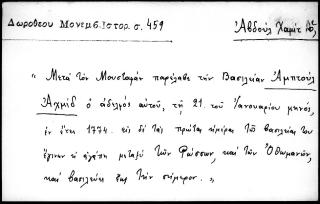 Δωροθέου Μονεμβ. Ἱστορ. σ. 459
Ἀβδούλ Χαμίτ Α΄
« Μετὰ τὸν Μουσταφᾶν παρέλαβε τὴν Βασιλείαν Ἀμπτούλ
Ἀχμίδ ὁ ἀδελφὸς αὐτοῦ, τῇ 21. τοῦ Ἰανουαρίου μηνός,
ἐν ἔτει 1774. εἰς δὲ τὰς πρώτας ἡμέρας τῆς βασιλείας του
ἔγινεν ἡ ἀγάπη μεταξὺ τῶν Ῥώσσων, καὶ τῶν Ὀθωμανῶν,
καὶ βασιλεύει ἕως τὴν σήμερον. »